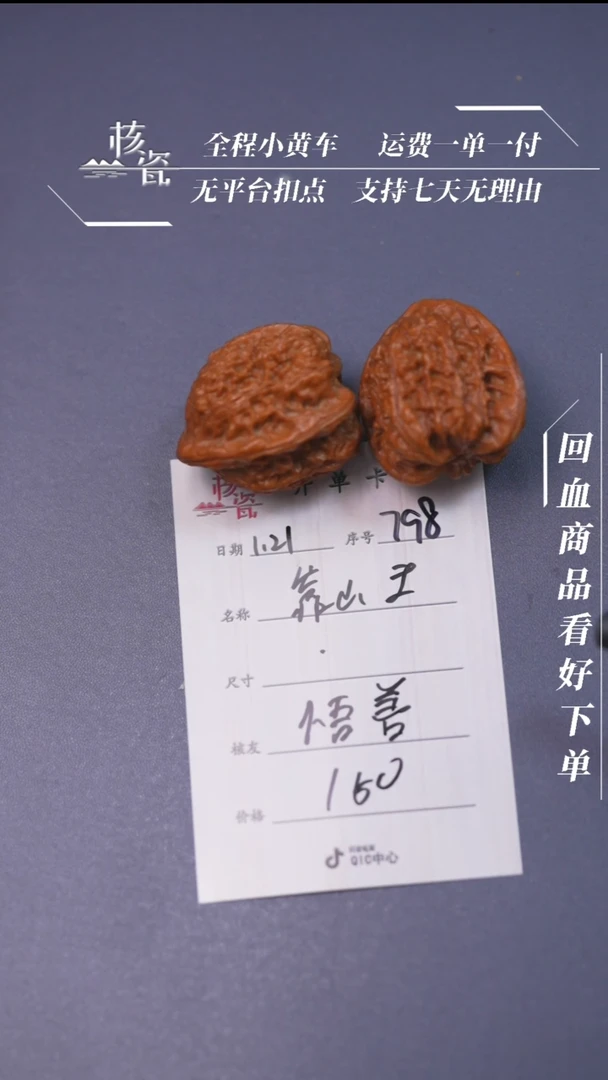 核瓷
全程小黄车 运费一单一付
无平台扣点 支持七天无理由
回血商品看好下单
核瓷 开单卡
日期 1.21 序号 798
名称 靠山王
尺寸
核友 悟善
价格 160
QIC中心